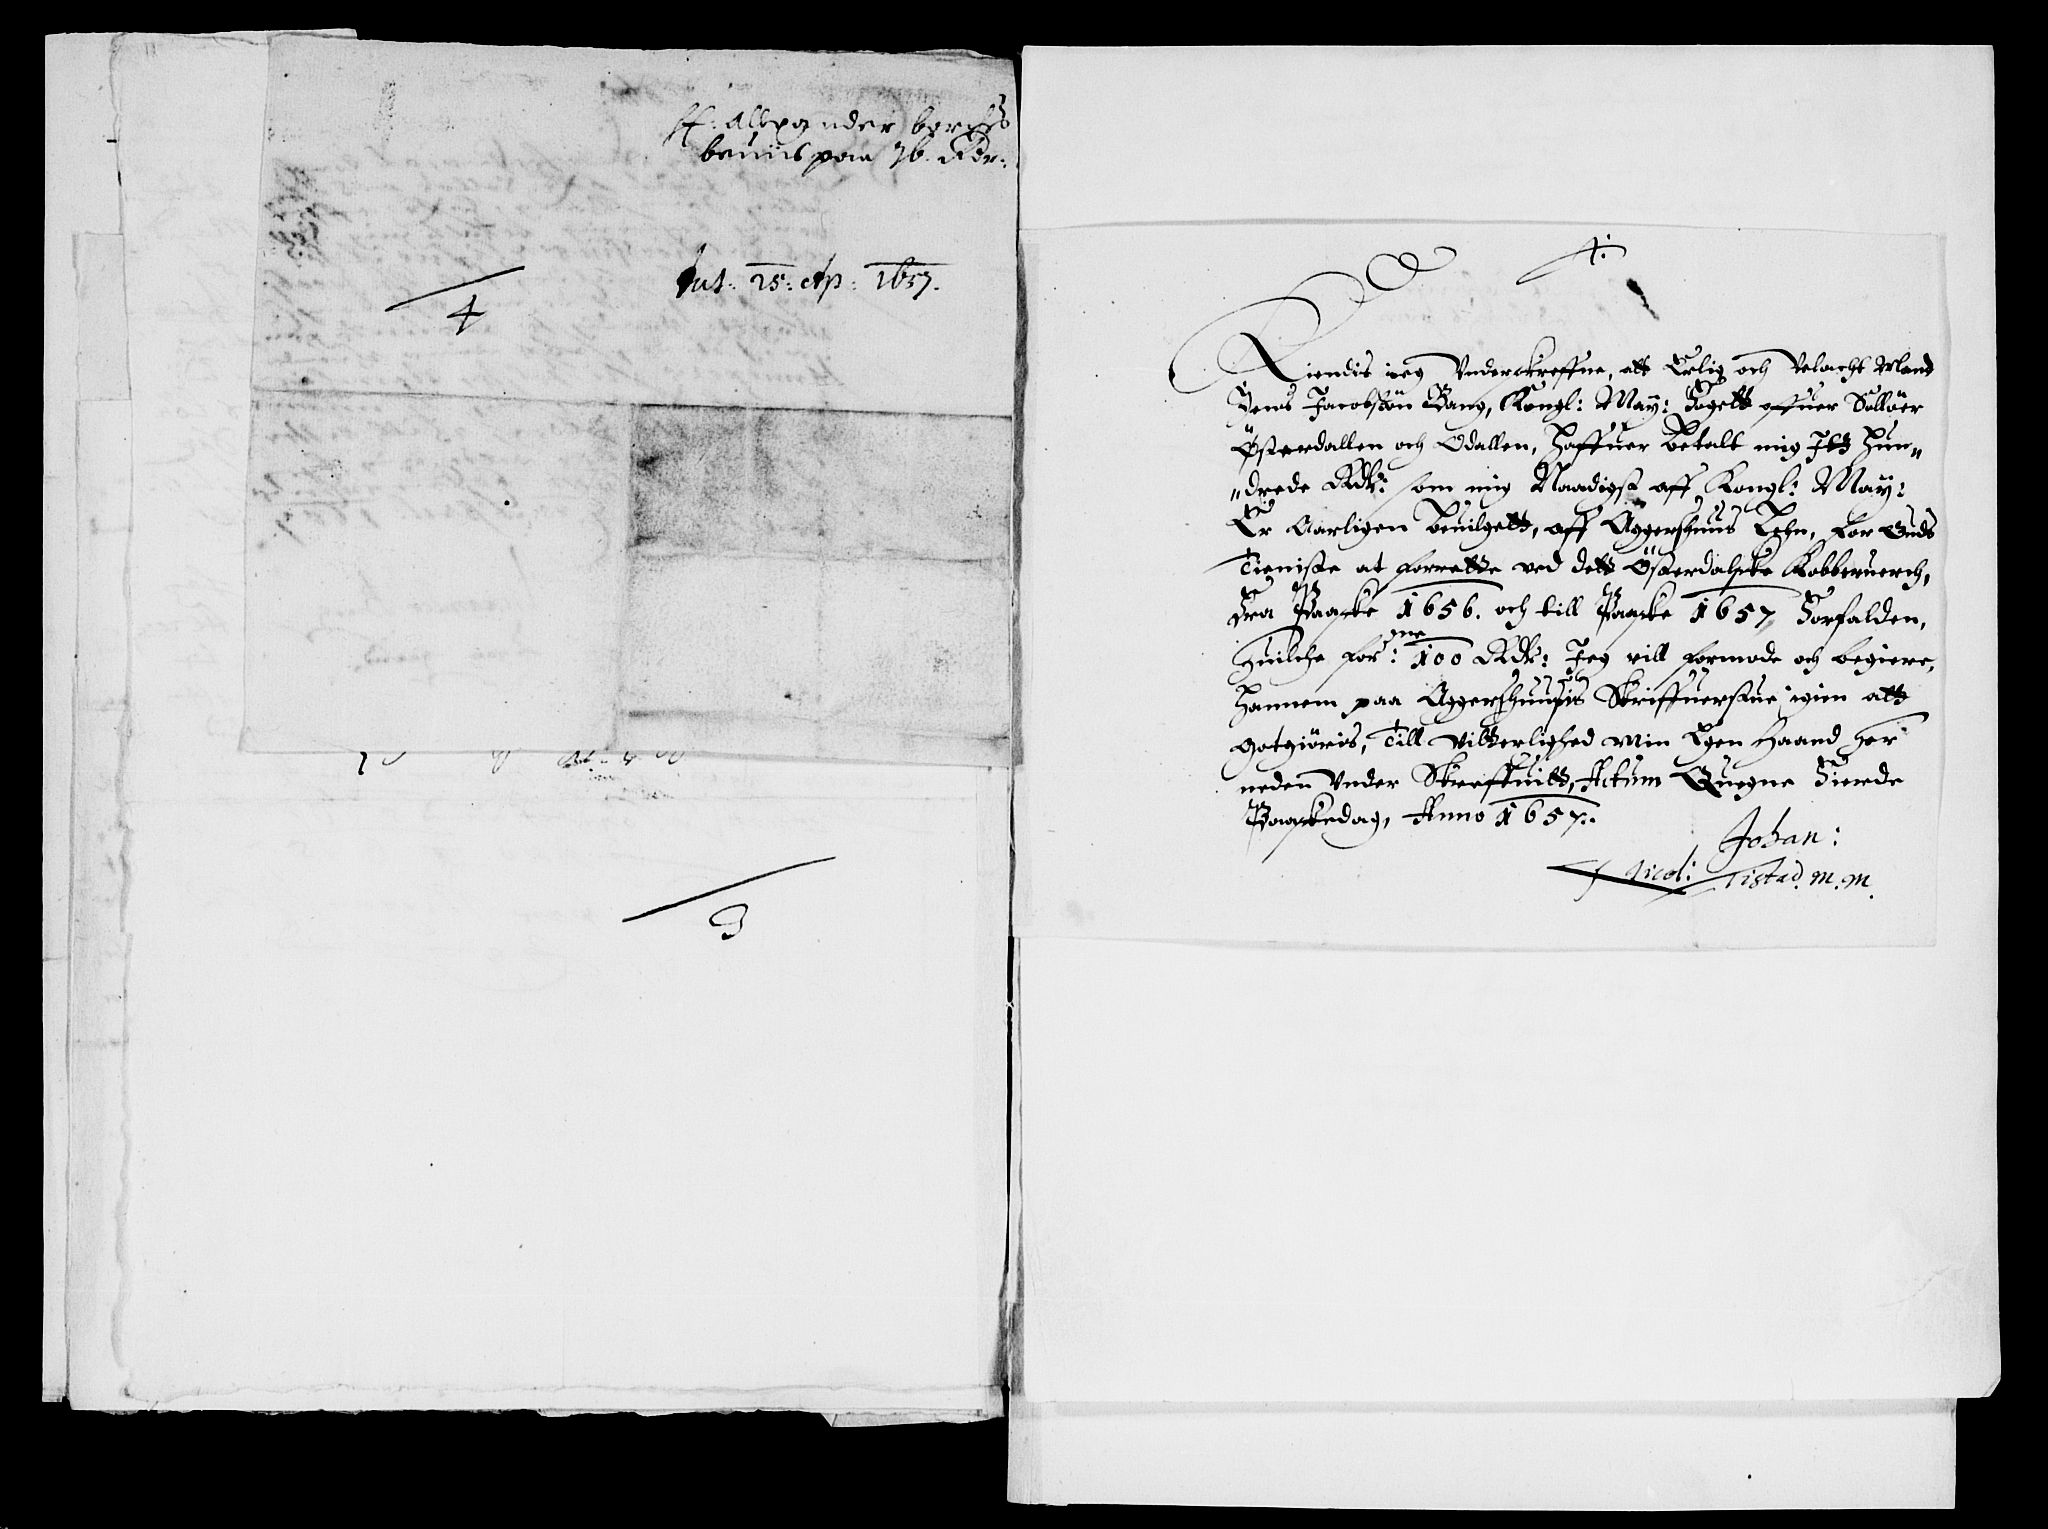 H: Allexander borchs
beuiis paa 76. Rdr:
Int. 25: Ap: 1657.
4
3
4:
Kiendis ieg Vnderskreffne, att Erlig och Velacht Mand
Jens Jacobsøn Bang, Kongl: May: Fogett offuer Sollöer
Österdallen och Odallen, Haffuer Betalt mig Itt Hun„
„drede Rdr: som mig Naadigst aff Kongl: May:
Er Aarligen Beuilgett, aff Aggershuus Lehn, for Guds
Tieniste at forrette ved dett Österdalske Kobberuerch,
Fra Paaske 1656. och till Paaske 1657 Forfalden,
Huilche for:ne 100 Rdr: Jeg vill formode och begiere,
Hannem paa Aggershuusis Skriffuerstue igien att
gotgiöris, Till Vitterlighed min Egen Haand her
neden Vnder Skreffuitt, Actum Quegne Fierde
Paaskedag, Anno 1657.
Johan:
Nicol: Tistad. M. M.